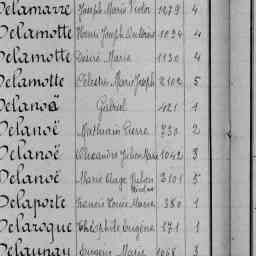 Delamarre Joseph Marie Victor 1279 4
Delamotte Henri Joseph 1094 4
Delamotte Désiré Marie 1130 4
Delamotte Célestin Marie Joseph 2102 5
Delanoë Gabriel 421 1
Delanoë Mathurin Pierre 730 2
Delanoë Alexandre Julien Marie 1042 3
Delanoë Marie Ange Julien 2101 5
Nicolas
Delaporte Francis Louis Marie 380 1
Delaroque Théophile Eugène 171 1
Delaunay Eugène Marie 1068 3